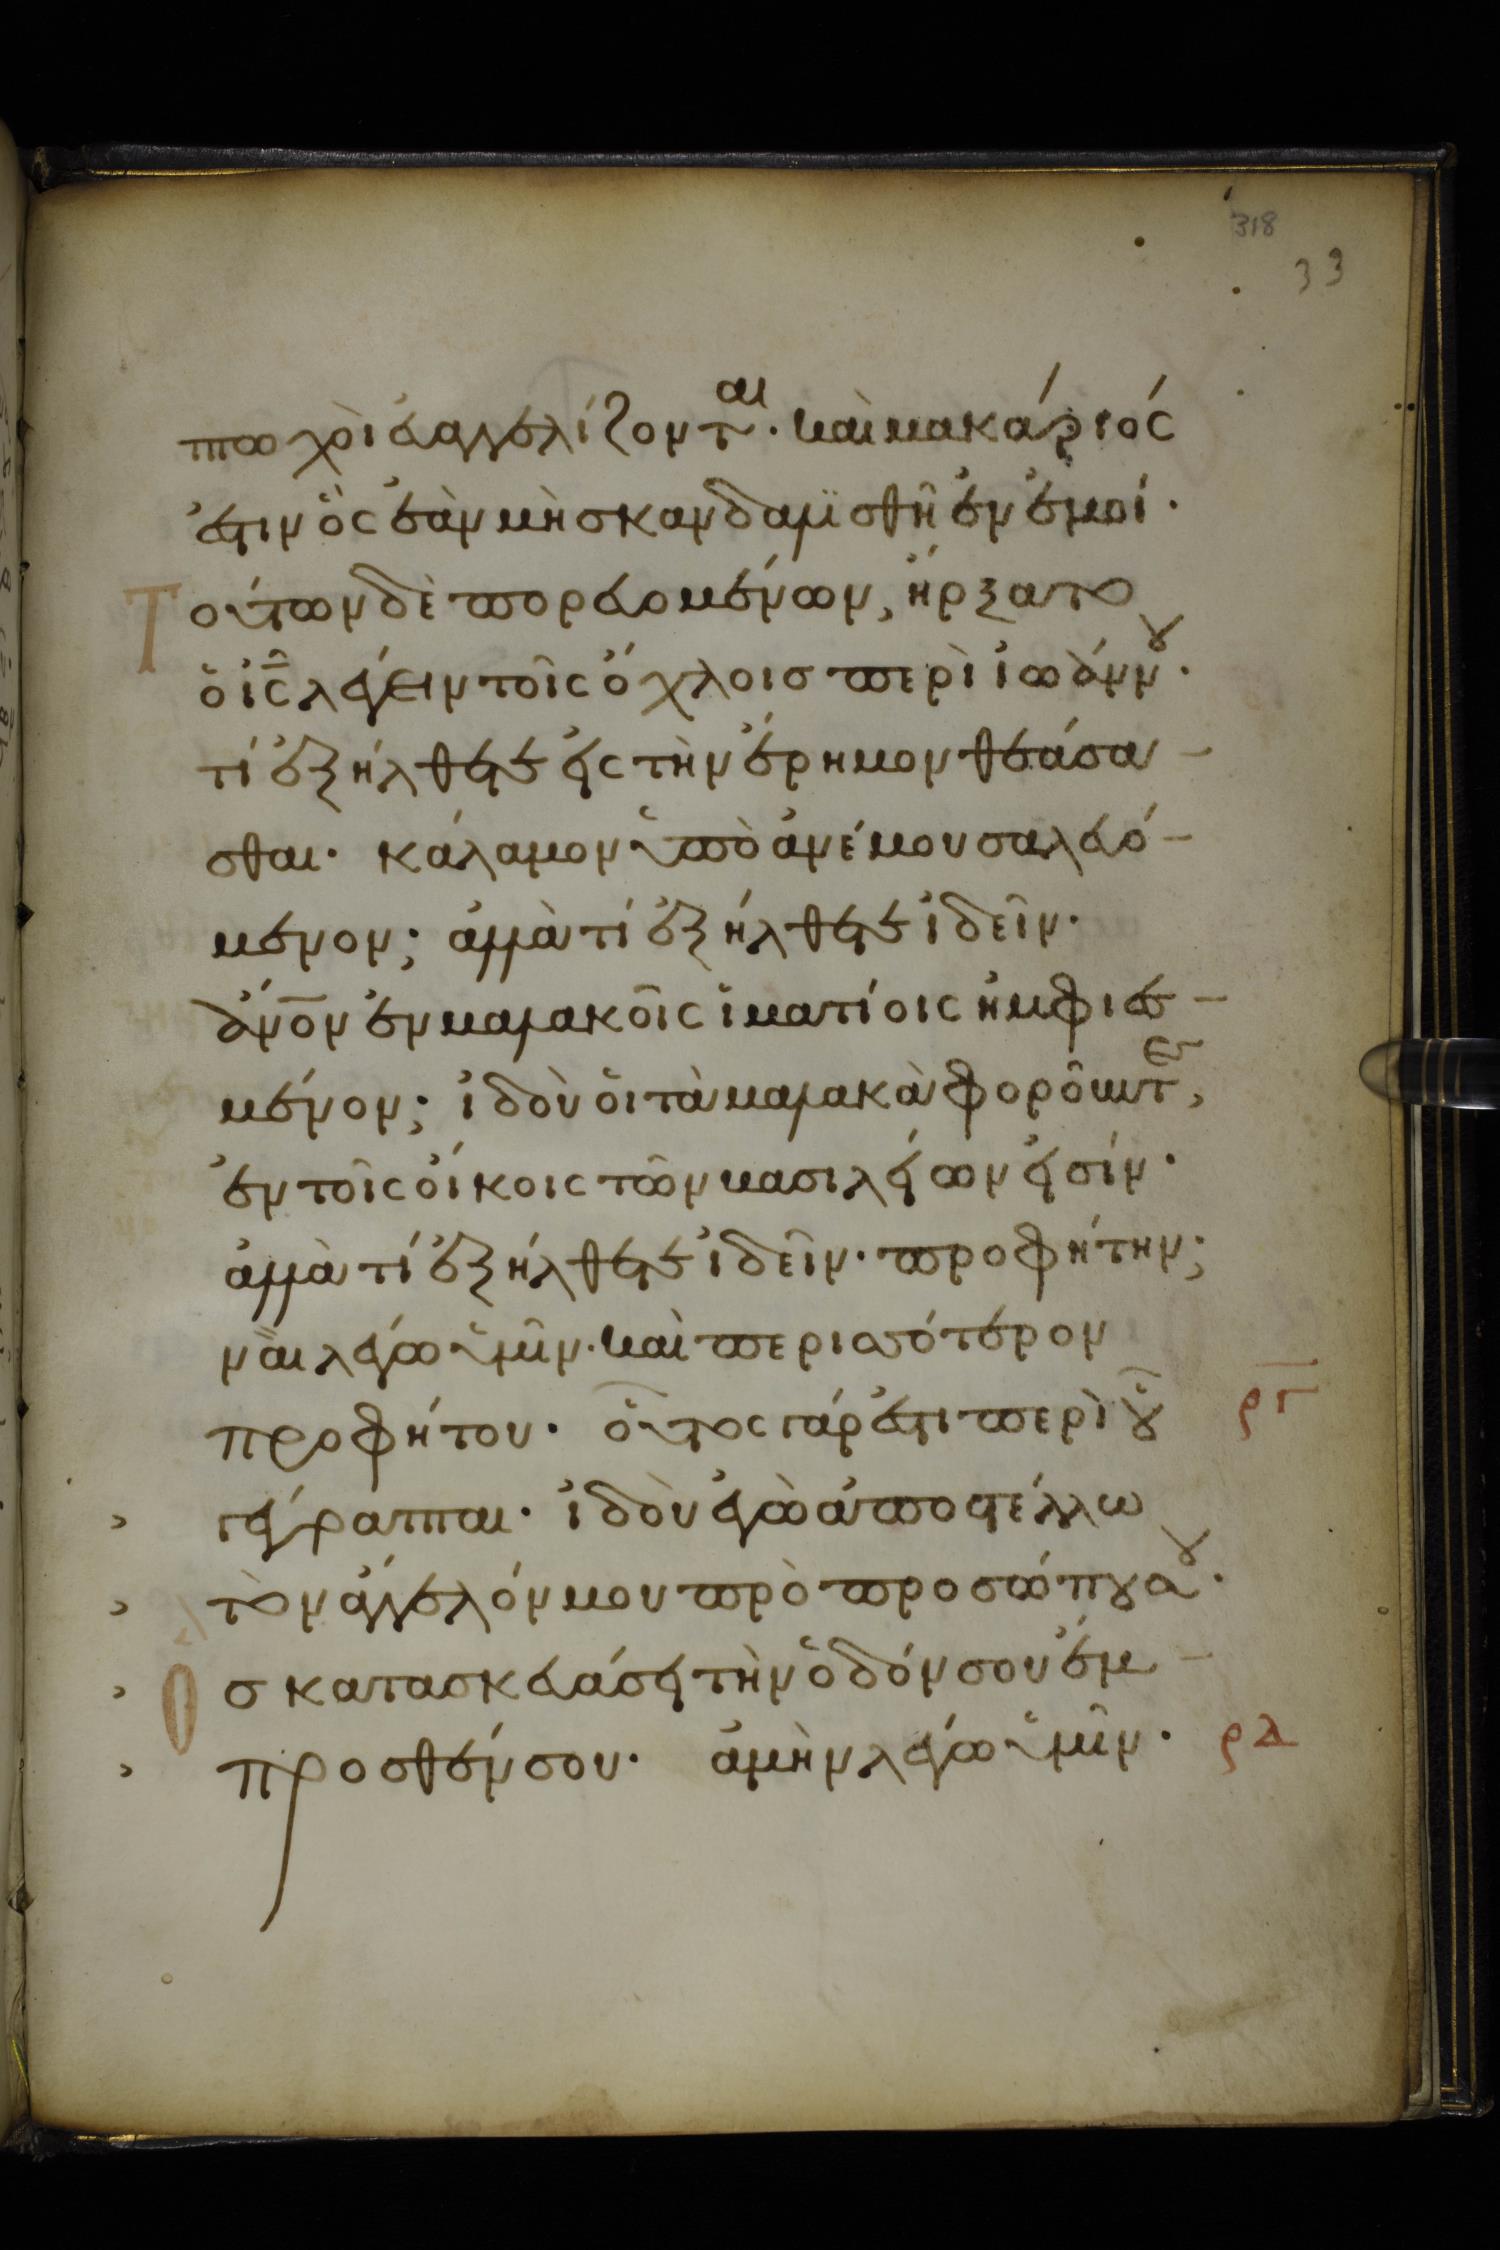 318
33
πτωχοὶ ἐυαγγελίζονται· καὶ μακάριός
ἐστιν ὃς ἐὰν μὴ σκανδαλϊσθῆ ἐν ἐμοί·
Τούτων δὲ πορευομένων, ἤρξατο
ὁ ις λέγειν τοῖς ὄχλοισ περὶ ἰωάννου·
τί ἐξήλθετε εἰς τὴν ἔρημον θεάσα-
σθαι· κάλαμον ὑπὸ ἀνέμου σαλευό-
μενον; ἀλλὰ τί ἐξήλθετε ἰδεῖν·
ἄνον ἐν μαλακοῖς ἱματίοις ἠμφιεσ-
μένον; ἰδοὺ οἱ τὰ μαλακὰ φοροῦντες,
ἐν τοῖς οἴκοις τῶν βασιλείων εἰσίν·
ἀλλὰ τί ἐξήλθετε ἰδεῖν· προφήτην;
ναὶ λέγω ὑμῖν· καὶ περισσότερον
προφήτου· οὗτος γάρ ἐστι περὶ οὗ ργ
γέγραπται· ἰδοὺ ἐγὼ ἀποστέλλω
τὸν ἄγγελόν μου πρὸ προσώπου σου·
Οσ κατασκευάσει τὴν ὁδόν σου ἔμ-
προσθέν σου· ἀμὴν λέγω ὑμῖν· ρδ